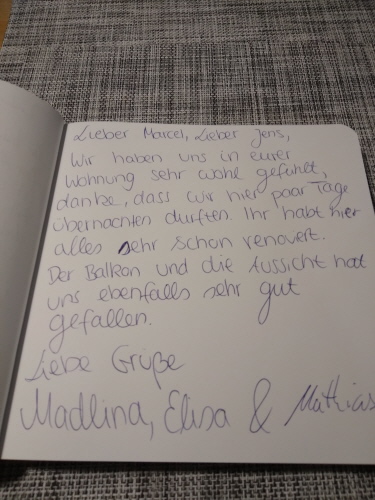 Lieber Marcel, Lieber Jens,
Wir haben uns in eurer
Wohnung sehr wohl gefühlt,
danke, dass wir hier paar Tage
übernachten durften. Ihr habt hier
alles sehr schon renoviert.
Der Balkon und die Aussicht hat
uns ebenfalls sehr gut
gefallen.
Liebe Grüße
Madlina, Elisa & Mathias